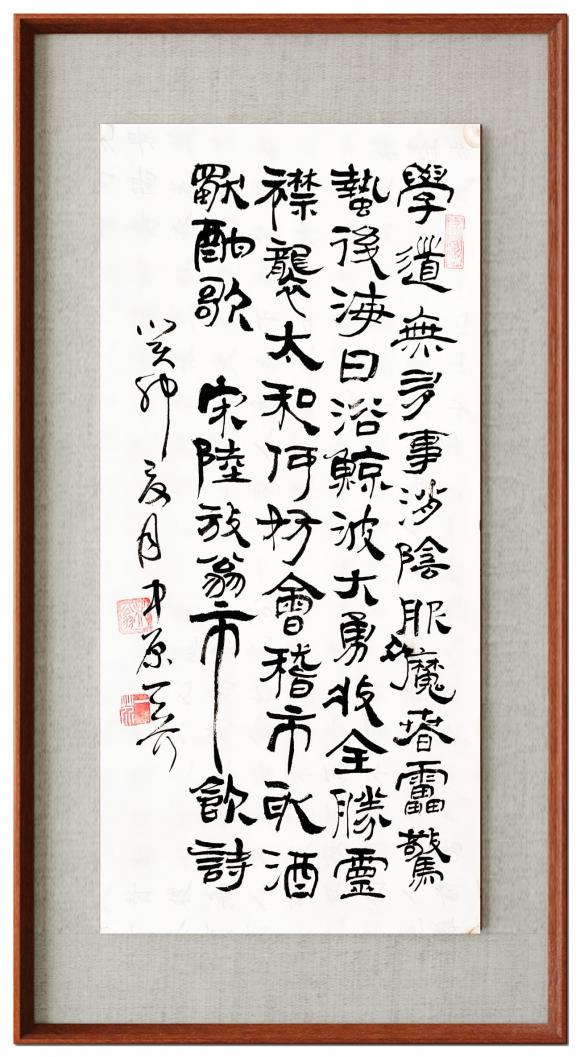 學道無多事消陰服眾魔春雷驚
蟄後海日浴鯨波大勇收全勝靈
襟襲太和何妨會稽市取酒
獻酬歌 宋陸放翁市飲詩
癸卯 月中原